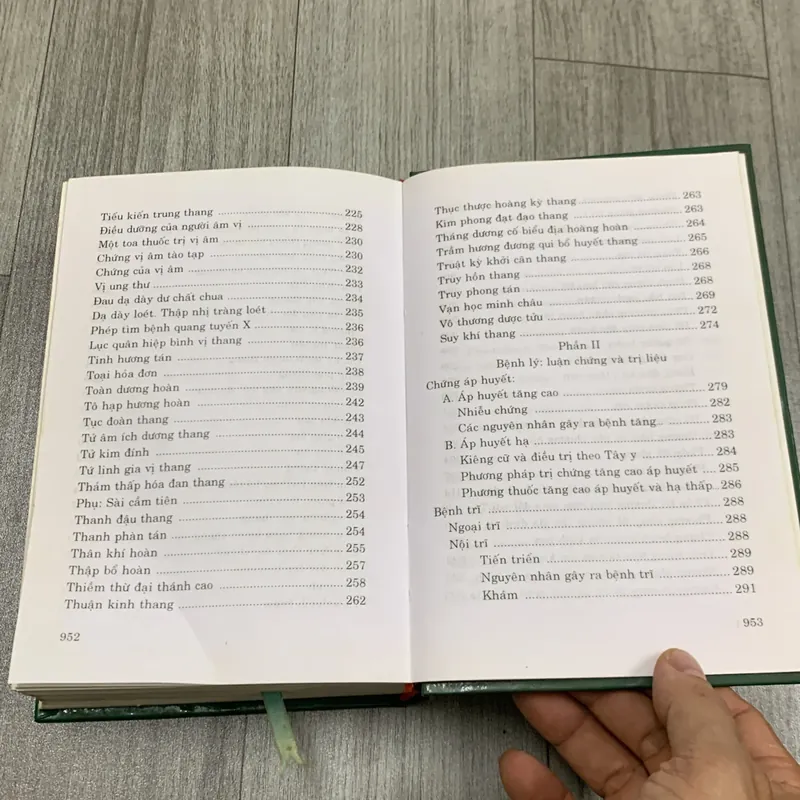 Tiểu kiến trung thang ........ 225
Điều dưỡng của người âm vị ........ 228
Một toa thuốc trị vị âm ........ 230
Chứng vị âm tào tạp ........ 230
Chứng của vị âm ........ 232
Vị ung thư ........ 233
Đau dạ dày dư chất chua ........ 234
Dạ dày loét. Thập nhị tràng loét ........ 235
Phép tìm bệnh quang tuyến X ........ 236
Lục quân hiệp bình vị thang ........ 236
Tinh hương tán ........ 237
Toại hóa đơn ........ 238
Toàn dương hoàn ........ 239
Tô hạp hương hoàn ........ 242
Tục đoàn thang ........ 243
Tứ âm ích dương thang ........ 244
Tứ kim đính ........ 245
Tứ linh gia vị thang ........ 247
Thám thấp hóa đan thang ........ 252
Phụ: Sài cầm tiên ........ 253
Thanh đậu thang ........ 254
Thanh phàn tán ........ 254
Thân khí hoàn ........ 255
Thập bổ hoàn ........ 257
Thiềm thừ đại thánh cao ........ 258
Thuận kinh thang ........ 262
952
Thục thược hoàng kỳ thang ........ 263
Kim phong đạt đạo thang ........ 263
Tháng dương cố biểu địa hoàng hoàn ........ 264
Trầm hương đương qui bổ huyết thang ........ 265
Truật kỳ khởi cân thang ........ 266
Truy hồn thang ........ 268
Truy phong tán ........ 268
Vạn học minh châu ........ 269
Vô thương dược tửu ........ 272
Suy khí thang ........ 274
Phần II
Bệnh lý: luận chứng và trị liệu
Chứng áp huyết:
A. Áp huyết tăng cao ........ 279
Nhiễu chứng ........ 282
Các nguyên nhân gây ra bệnh tăng ........ 283
B. Áp huyết hạ ........ 283
Kiêng cữ và điều trị theo Tây y ........ 284
Phương pháp trị chứng tăng cao áp huyết .... 285
Phương thuốc tăng cao áp huyết và hạ thấp.. 286
Bệnh trĩ ........ 288
Ngoại trĩ ........ 288
Nội trĩ ........ 288
Tiến triển ........ 289
Nguyên nhân gây ra bệnh trĩ ........ 289
Khám ........ 291
953